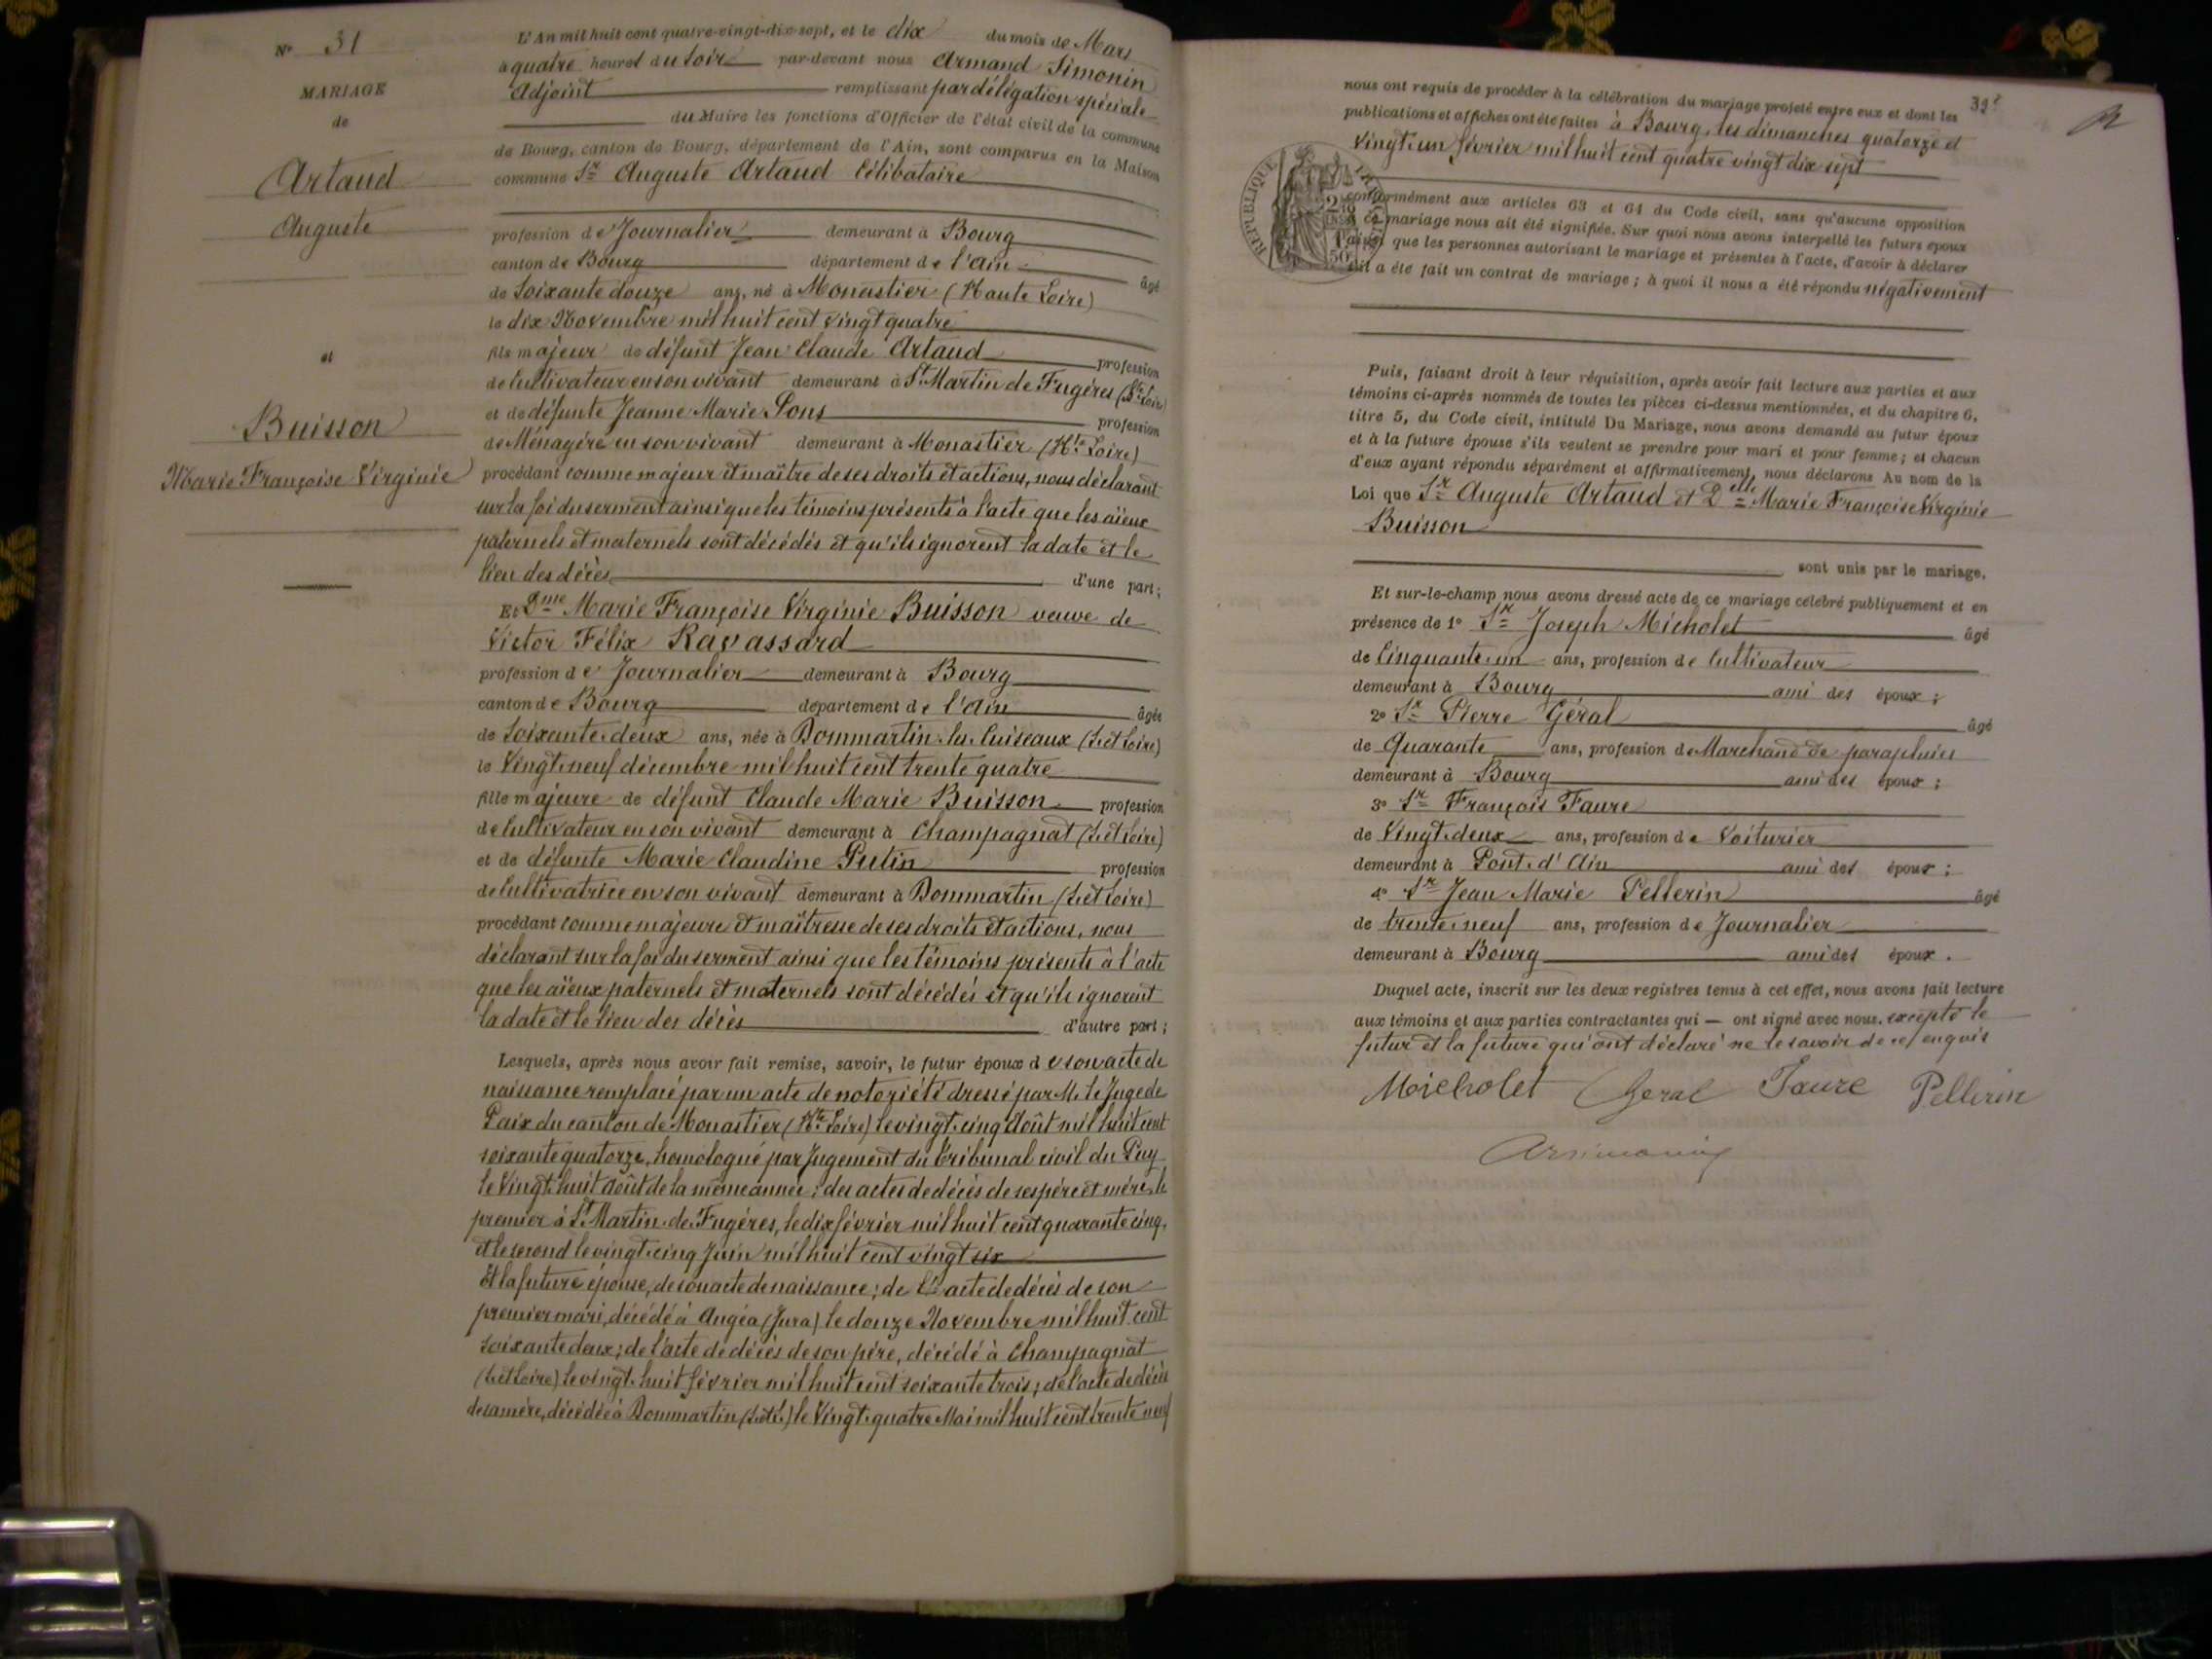 N° 31
MARIAGE
de
Artaud
Auguste
et
Buisson
Marie Françoise Virginie
L'An mil huit cent quatre-vingt-dix-sept, et le dix du mois de Mars
à quatre heures du soir par-devant nous Armand Simonin
Adjoint remplissant par délégation spéciale
du Maire les fonctions d'Officier de l'état civil de la commune
de Bourg, canton de Bourg, département de l'Ain, sont comparus en la Maison
commune Sr Auguste Artaud Célibataire
profession de Journalier demeurant à Bourg
canton de Bourg département de l'Ain âgé
de Soixante douze ans, né à Monastier (Haute Loire)
le dix Novembre mil huit cent vingt quatre
fils majeur de défunt Jean Claude Artaud profession
de Cultivateur en son vivant demeurant à St Martin de Fugères (Hte Loire)
et de défunte Jeanne Marie Pons profession
de Ménagère en son vivant demeurant à Monastier (Hte Loire)
procédant comme majeur et maître de ses droits et actions, nous déclarant
sur la foi du serment ainsi que les témoins présents à l'acte que les aïeux
paternels et maternels sont décédés et qu'ils ignorent la date et le
lieu des décès d'une part;
Et Dme Marie Françoise Virginie Buisson veuve de
Victor Félix Ravassard
profession de Journalier demeurant à Bourg
canton de Bourg département de l'Ain âgée
de Soixante deux ans, née à Dommartin les Cuiseaux (S. et Loire)
le Vingt neuf décembre mil huit cent trente quatre
fille majeure de défunt Claude Marie Buisson profession
de Cultivateur en son vivant demeurant à Champagnat (S. et Loire)
et de défunte Marie Claudine Putin profession
de Cultivatrice en son vivant demeurant à Dommartin (S. et Loire)
procédant comme majeure et maîtresse de ses droits et actions, nous
déclarant sur la foi du serment ainsi que les témoins présents à l'acte
que les aïeux paternels et maternels sont décédés et qu'ils ignorent
la date et le lieu des décès d'autre part;
Lesquels, après nous avoir fait remise, savoir, le futur époux de son acte de
naissance remplacé par un acte de notoriété dressé par M. le Juge de
Paix du canton de Monastier (Hte Loire) le vingt cinq Août mil huit cent
soixante quatorze, homologué par Jugement du tribunal civil du Puy
le Vingt huit Août de la même année; des actes de décès de ses père et mère, le
premier à St Martin de Fugères, le dix février mil huit cent quarante cinq,
et le second le vingt cinq Juin mil huit cent vingt six
Et la future épouse, de son acte de naissance; de l'acte de décès de son
premier mari, décédé à Augéa (Jura) le douze Novembre mil huit cent
soixante deux; de l'acte de décès de son père, décédé à Champagnat
(S. et Loire) le vingt huit février mil huit cent soixante trois; de l'acte de décès
de sa mère, décédée à Dommartin (S. et L.) le Vingt quatre Mai mil huit cent trente neuf
32
nous ont requis de procéder à la célébration du mariage projeté entre eux et dont les
publications et affiches ont été faites à Bourg, les dimanches quatorze et
vingt un février mil huit cent quatre vingt dix sept
REPUBLIQUE
conformément aux articles 63 et 64 du Code civil, sans qu'aucune opposition
à ce mariage nous ait été signifiée. Sur quoi nous avons interpellé les futurs époux
ainsi que les personnes autorisant le mariage et présentes à l'acte, d'avoir à déclarer
s'il a été fait un contrat de mariage; à quoi il nous a été répondu négativement
Puis, faisant droit à leur réquisition, après avoir fait lecture aux parties et aux
témoins ci-après nommés de toutes les pièces ci-dessus mentionnées, et du chapitre 6,
titre 5, du Code civil, intitulé Du Mariage, nous avons demandé au futur époux
et à la future épouse s'ils veulent se prendre pour mari et pour femme; et chacun
d'eux ayant répondu séparément et affirmativement, nous déclarons Au nom de la
Loi que Sr Auguste Artaud et Delle Marie Françoise Virginie
Buisson
sont unis par le mariage.
Et sur-le-champ nous avons dressé acte de ce mariage célébré publiquement et en
présence de 1° Sr Joseph Micholet âgé
de Cinquante un ans, profession de Cultivateur
demeurant à Bourg ami des époux;
2° Sr Pierre Géral âgé
de Quarante ans, profession de Marchand de parapluies
demeurant à Bourg ami des époux;
3° Sr François Faure
de Vingt deux ans, profession de Voiturier
demeurant à Pont d'Ain ami des époux;
4° Sr Jean Marie Pellerin âgé
de trente neuf ans, profession de Journalier
demeurant à Bourg ami des époux.
Duquel acte, inscrit sur les deux registres tenus à cet effet, nous avons fait lecture
aux témoins et aux parties contractantes qui — ont signé avec nous. excepté le
futur et la future qui ont déclaré ne le savoir de ce enquis
Micholet Geral Faure Pellerin
Arsimonin